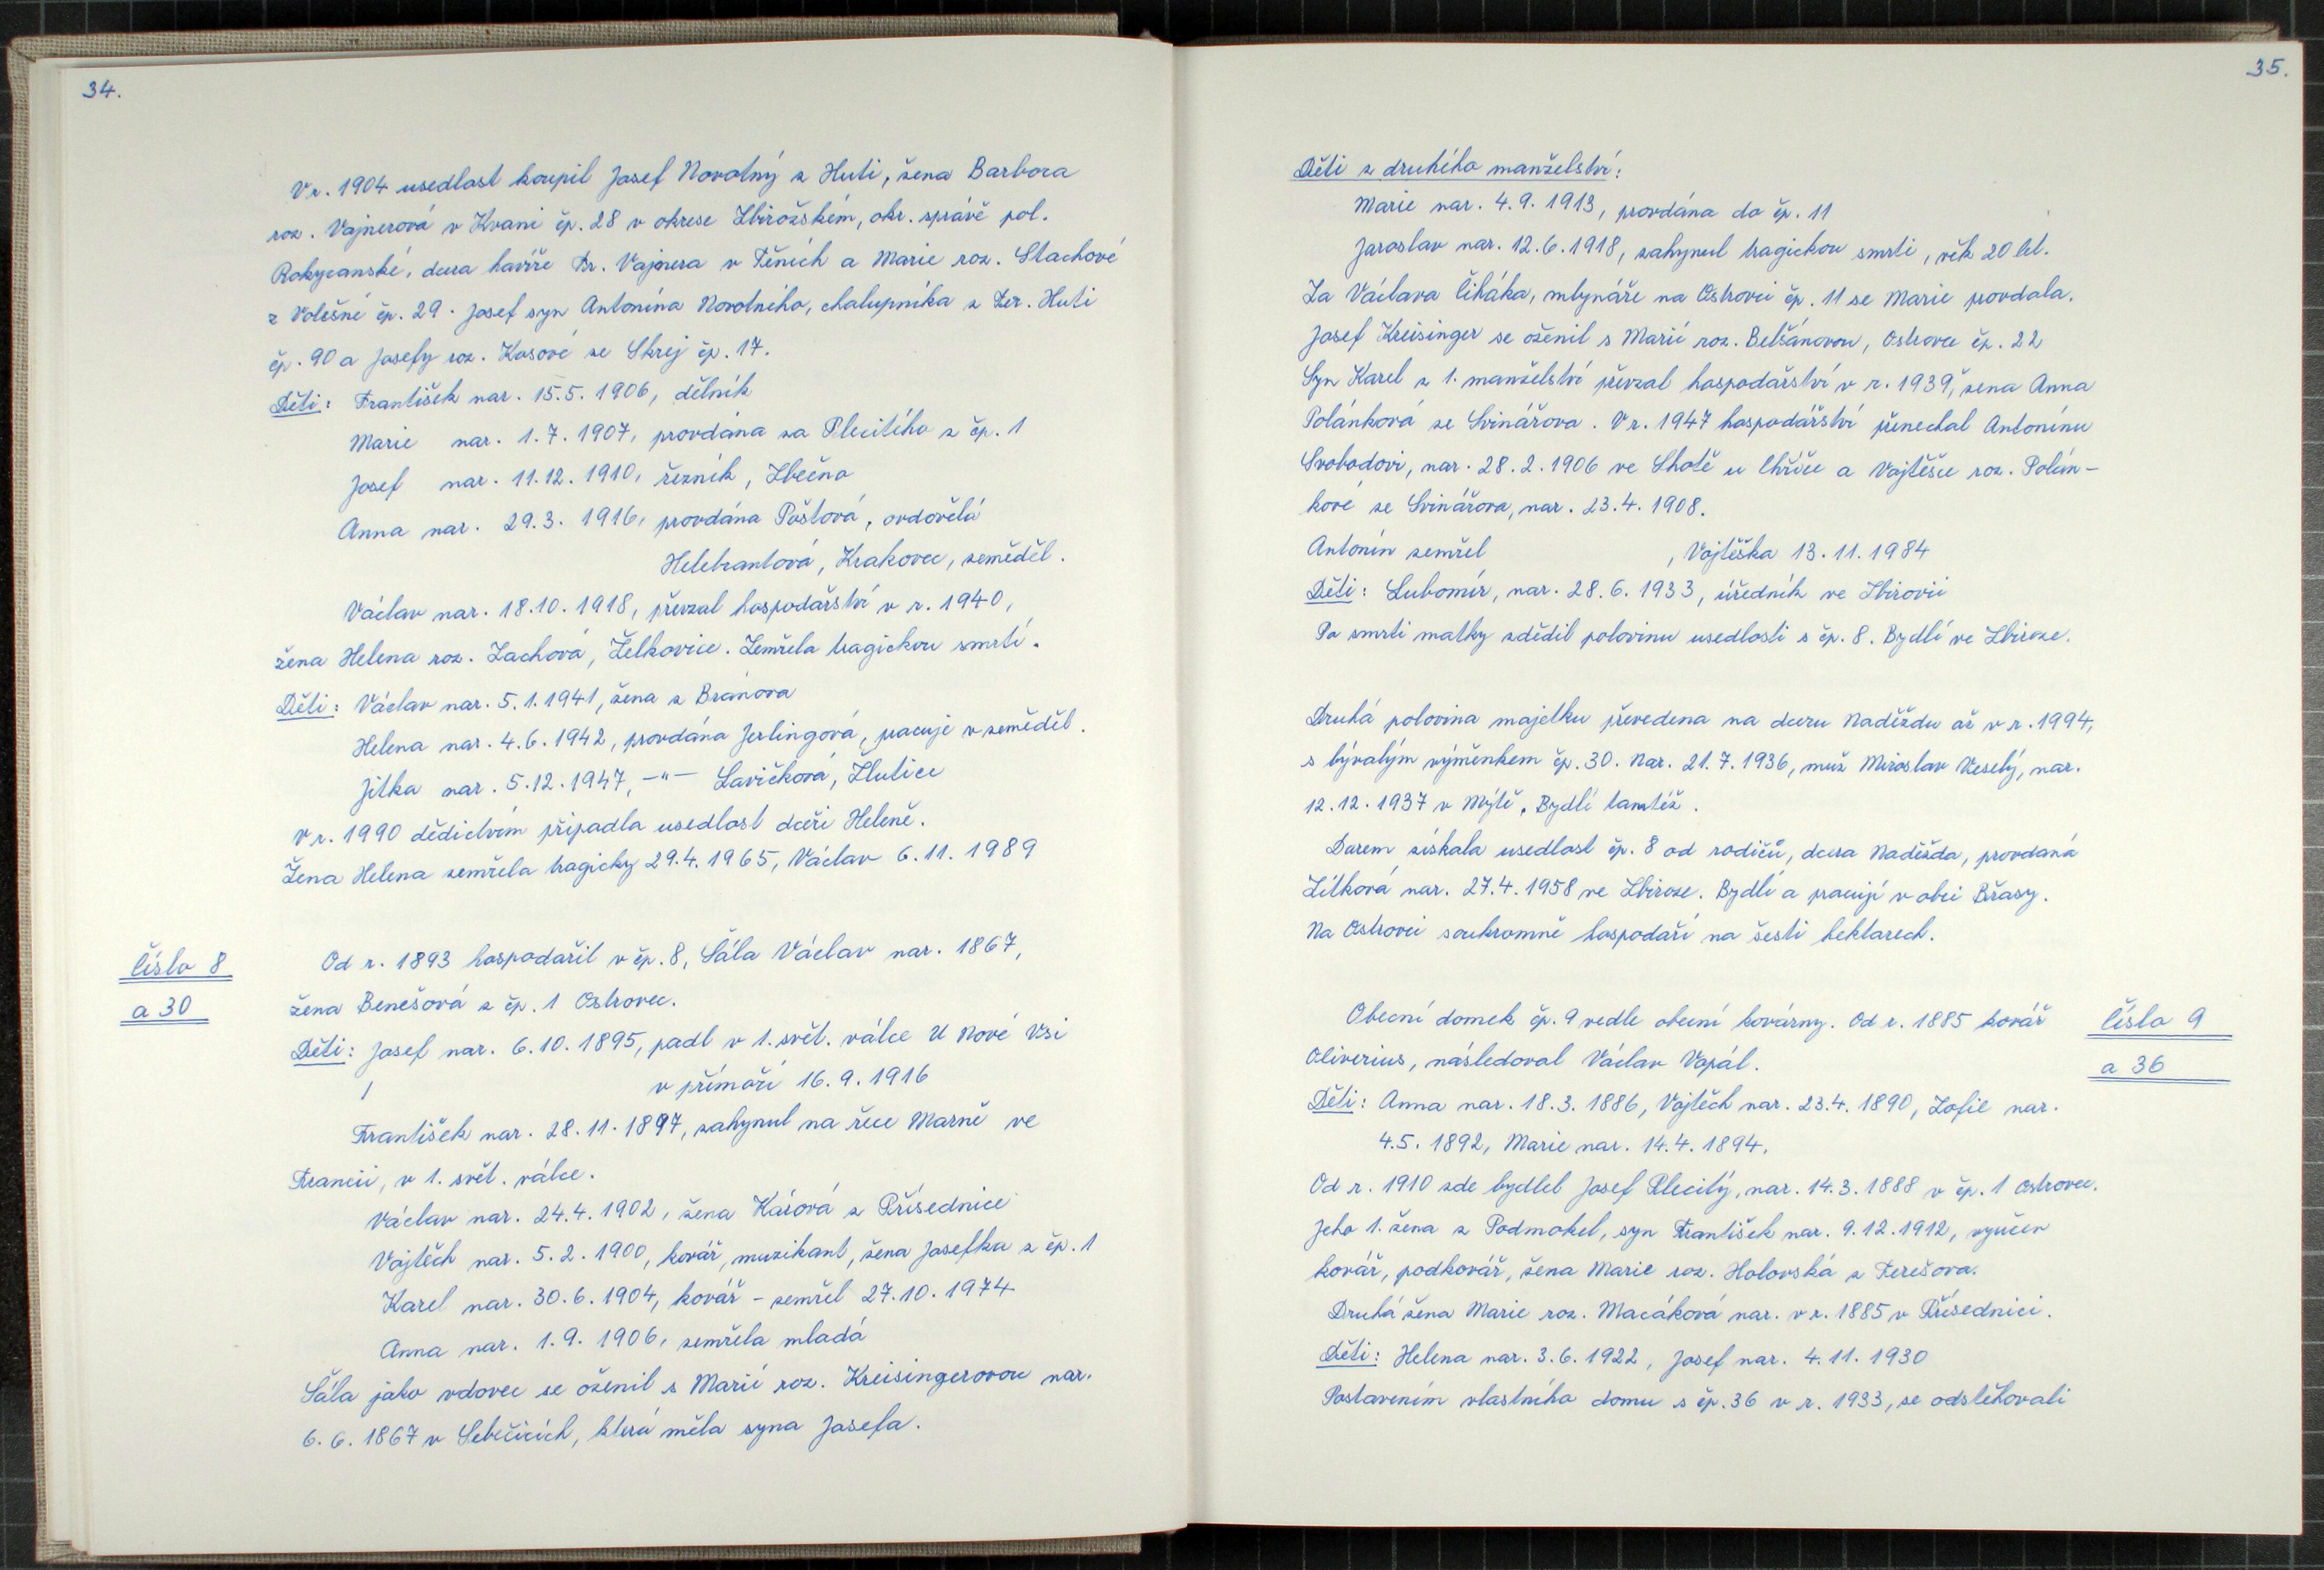 34.
V r. 1904 usedlost koupil Josef Novotný z Huti, žena Barbora
roz. Vajnerová v Kvani čp. 28 v okrese Zbirožském, okr. správě pol.
Rokycanské, dcera havíře Fr. Vajnera v Těních a Marie roz. Stachové
z Volešné čp. 29. Josef syn Antonína Novotného, chalupníka z Ter. Huti
čp. 90 a Josefy roz. Kosové ze Skrej čp. 17.
Děti: František nar. 15.5. 1906, dělník
Marie nar. 1.7. 1907, provdána za Plecitého z čp. 1
Josef nar. 11.12. 1910, řezník, Zbečno
Anna nar. 29.3. 1916, provdána Poštová, ovdovělá
Helebrantová, Krakovec, zeměděl.
Václav nar. 18.10. 1918, převzal hospodářství v r. 1940,
žena Helena roz. Zachová, Želkovice. Zemřela tragickou smrtí.
Děti: Václav nar. 5.1.1941, žena z Branova
Helena nar. 4.6. 1942, provdána Jerlingová, pracuje v zeměděl.
Jitka nar. 5.12. 1947, -"- Lavičková, Žlutice
V r. 1990 dědictvím připadla usedlost dceři Heleně.
Žena Helena zemřela tragicky 29.4. 1965, Václav 6.11. 1989
Číslo 8
a 30
Od r. 1893 hospodařil v čp. 8, Šála Václav nar. 1867,
žena Benešová z čp. 1 Ostrovec.
Děti: Josef nar. 6.10. 1895, padl v 1. svět. válce U Nové Vsi
v přímoří 16.9. 1916
František nar. 28.11. 1897, zahynul na řece Marně ve
Francii, v 1. svět. válce.
Václav nar. 24.4. 1902, žena Kárová z Příšednice
Vojtěch nar. 5.2. 1900, kovář, muzikant, žena Josefka z čp. 1
Karel nar. 30.6. 1904, kovář - zemřel 27.10. 1974
Anna nar. 1.9. 1906, zemřela mladá
Šála jako vdovec se oženil s Marií roz. Kreisingerovou nar.
6.6. 1867 v Sebečicích, která měla syna Josefa.
35.
Děti z druhého manželství:
Marie nar. 4.9. 1913, provdána do čp. 11
Jaroslav nar. 12.6.1918, zahynul tragickou smrtí, věk 20 let.
Za Václava Čiháka, mlynáře na Ostrovci čp. 11 se Marie provdala.
Josef Kreisinger se oženil s Marií roz. Belšánovou, Ostrovec čp. 22
Syn Karel z 1. manželství převzal hospodářství v r. 1939, žena Anna
Polánková ze Svinářova. V r. 1947 hospodářství přenechal Antonínu
Svobodovi, nar. 28.2. 1906 ve Lhotě u Chříče a Vojtěšce roz. Polán-
kové ze Svinářova, nar. 23.4. 1908.
Antonín zemřel , Vojtěška 13.11.1984
Děti: Lubomír, nar. 28.6. 1933, úředník ve Zbirovii
Po smrti matky zdědil polovinu usedlosti s čp. 8. Bydlí ve Zbiroze.
Druhá polovina majetku převedena na dceru Naděždu až v r. 1994,
s bývalým výměnkem čp. 30. Nar. 21.7. 1936, muž Miroslav Veselý, nar.
12.12. 1937 v Mýtě. Bydlí tamtéž.
Darem získala usedlost čp. 8 od rodičů, dcera Naděžda, provdaná
Zítková nar. 27.4. 1958 ve Zbiroze. Bydlí a pracují v obci Břasy.
Na Ostrovci soukromně hospodaří na šesti hektarech.
Obecní domek čp. 9 vedle obecní kovárny. Od r. 1885 kovář
Oliverius, následoval Václav Vopál.
Čísla 9
a 36
Děti: Anna nar. 18.3. 1886, Vojtěch nar. 23.4. 1890, Žofie nar.
4.5. 1892, Marie nar. 14.4. 1894.
Od r. 1910 zde bydlel Josef Plecitý, nar. 14.3. 1888 v čp. 1 Ostrovec.
Jeho 1. žena z Podmokel, syn František nar. 9.12. 1912, vyučen
kovář, podkovář, žena Marie roz. Holovská z Terešova.
Druhá žena Marie roz. Macáková nar. v r. 1885 v Příšednici.
Děti: Helena nar. 3.6. 1922, Josef nar. 4.11. 1930
Postavením vlastního domu s čp. 36 v r. 1933, se odstěhovali